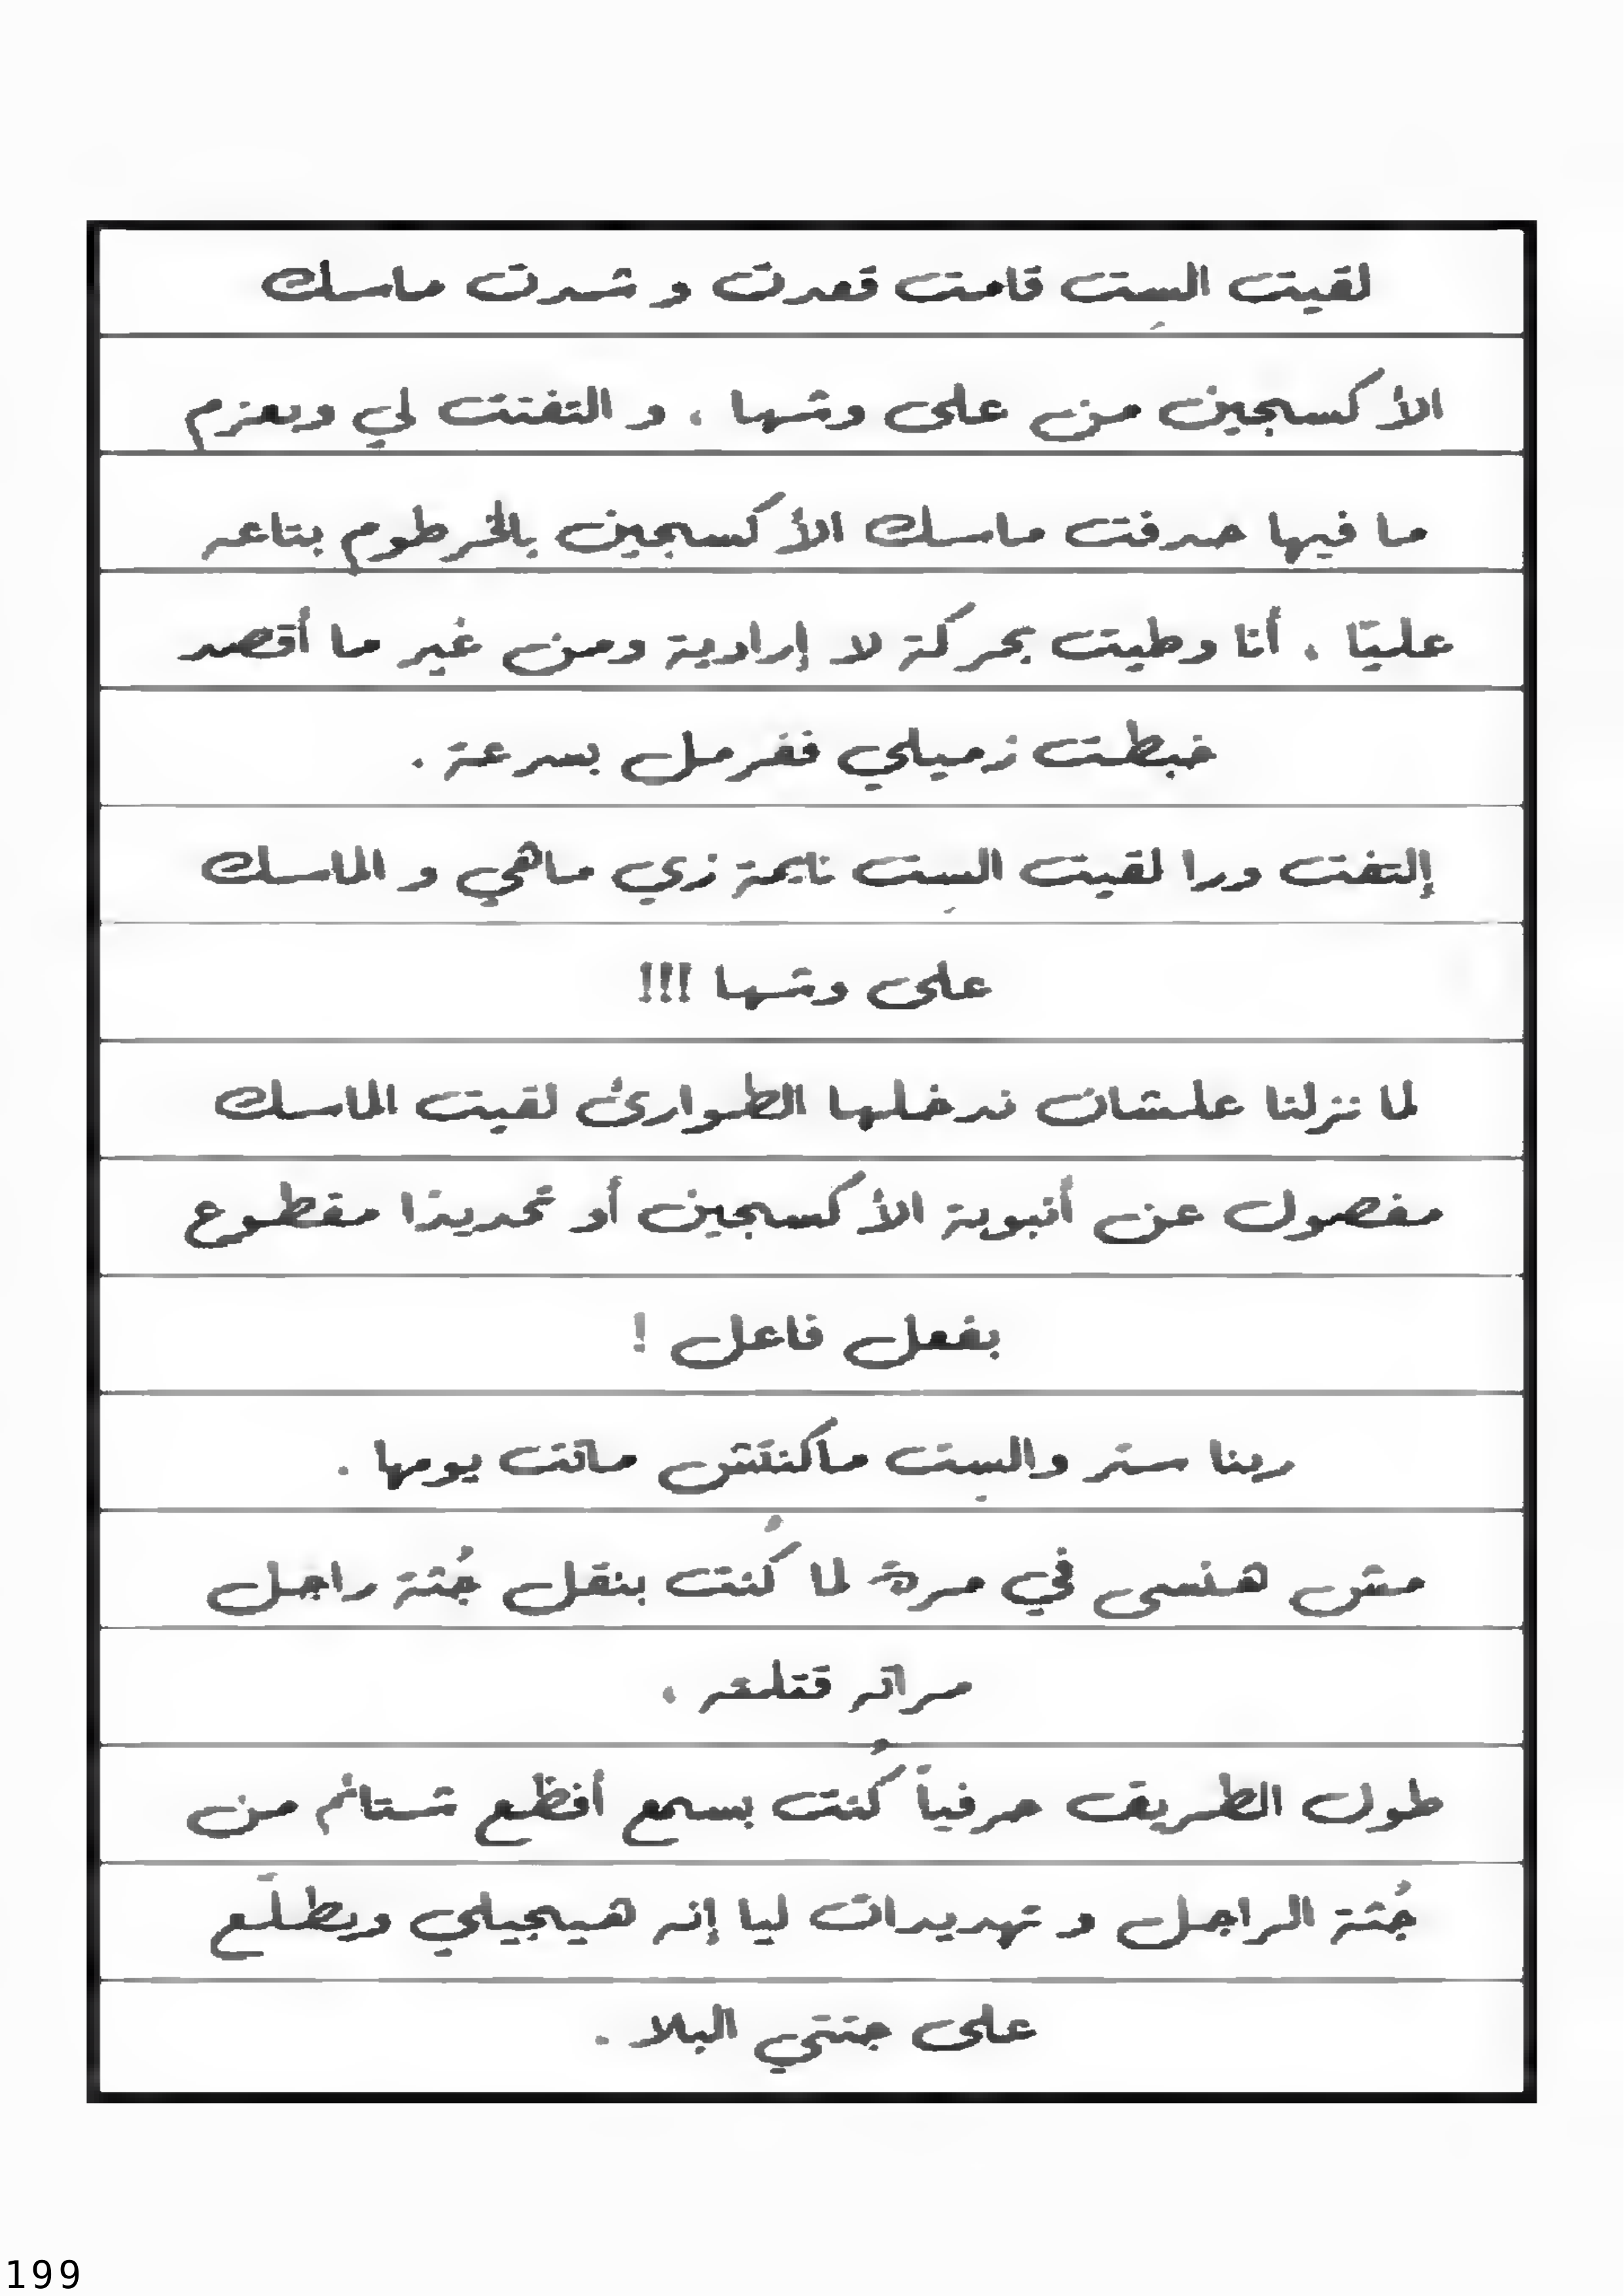 لقيت السِت قامت قعدت و شدت ماسك
الأكسجين من على وشها ، و التفتت لي وبعزم
ما فيها حدفت ماسك الأكسجين بالخرطوم بتاعه
عليّا ، أنا وطيت بحركة لا إرادية ومن غير ما أقصد
خبطت زميلي ففرمل بسرعة .
إلتفت ورا لقيت السِت نايمة زي ماهي و الماسك
على وشها !!!
لما نزلنا علشان ندخلها الطوارئ لقيت الماسك
مفصول عن أنبوبة الأكسجين أو تحديدًا مقطوع
بفعل فاعل !
ربنا ستر والسِت ماكنتش ماتت يومها .
مش هنسى في مرة لما كُنت بنقل جُثة راجل
مراته قتلته ،
طول الطريق حرفياً كُنت بسمع أفظع شتائم من
جُثة الراجل و تهديدات ليا إنه هيجيلي ويطلّع
على جتتي البلا .
199